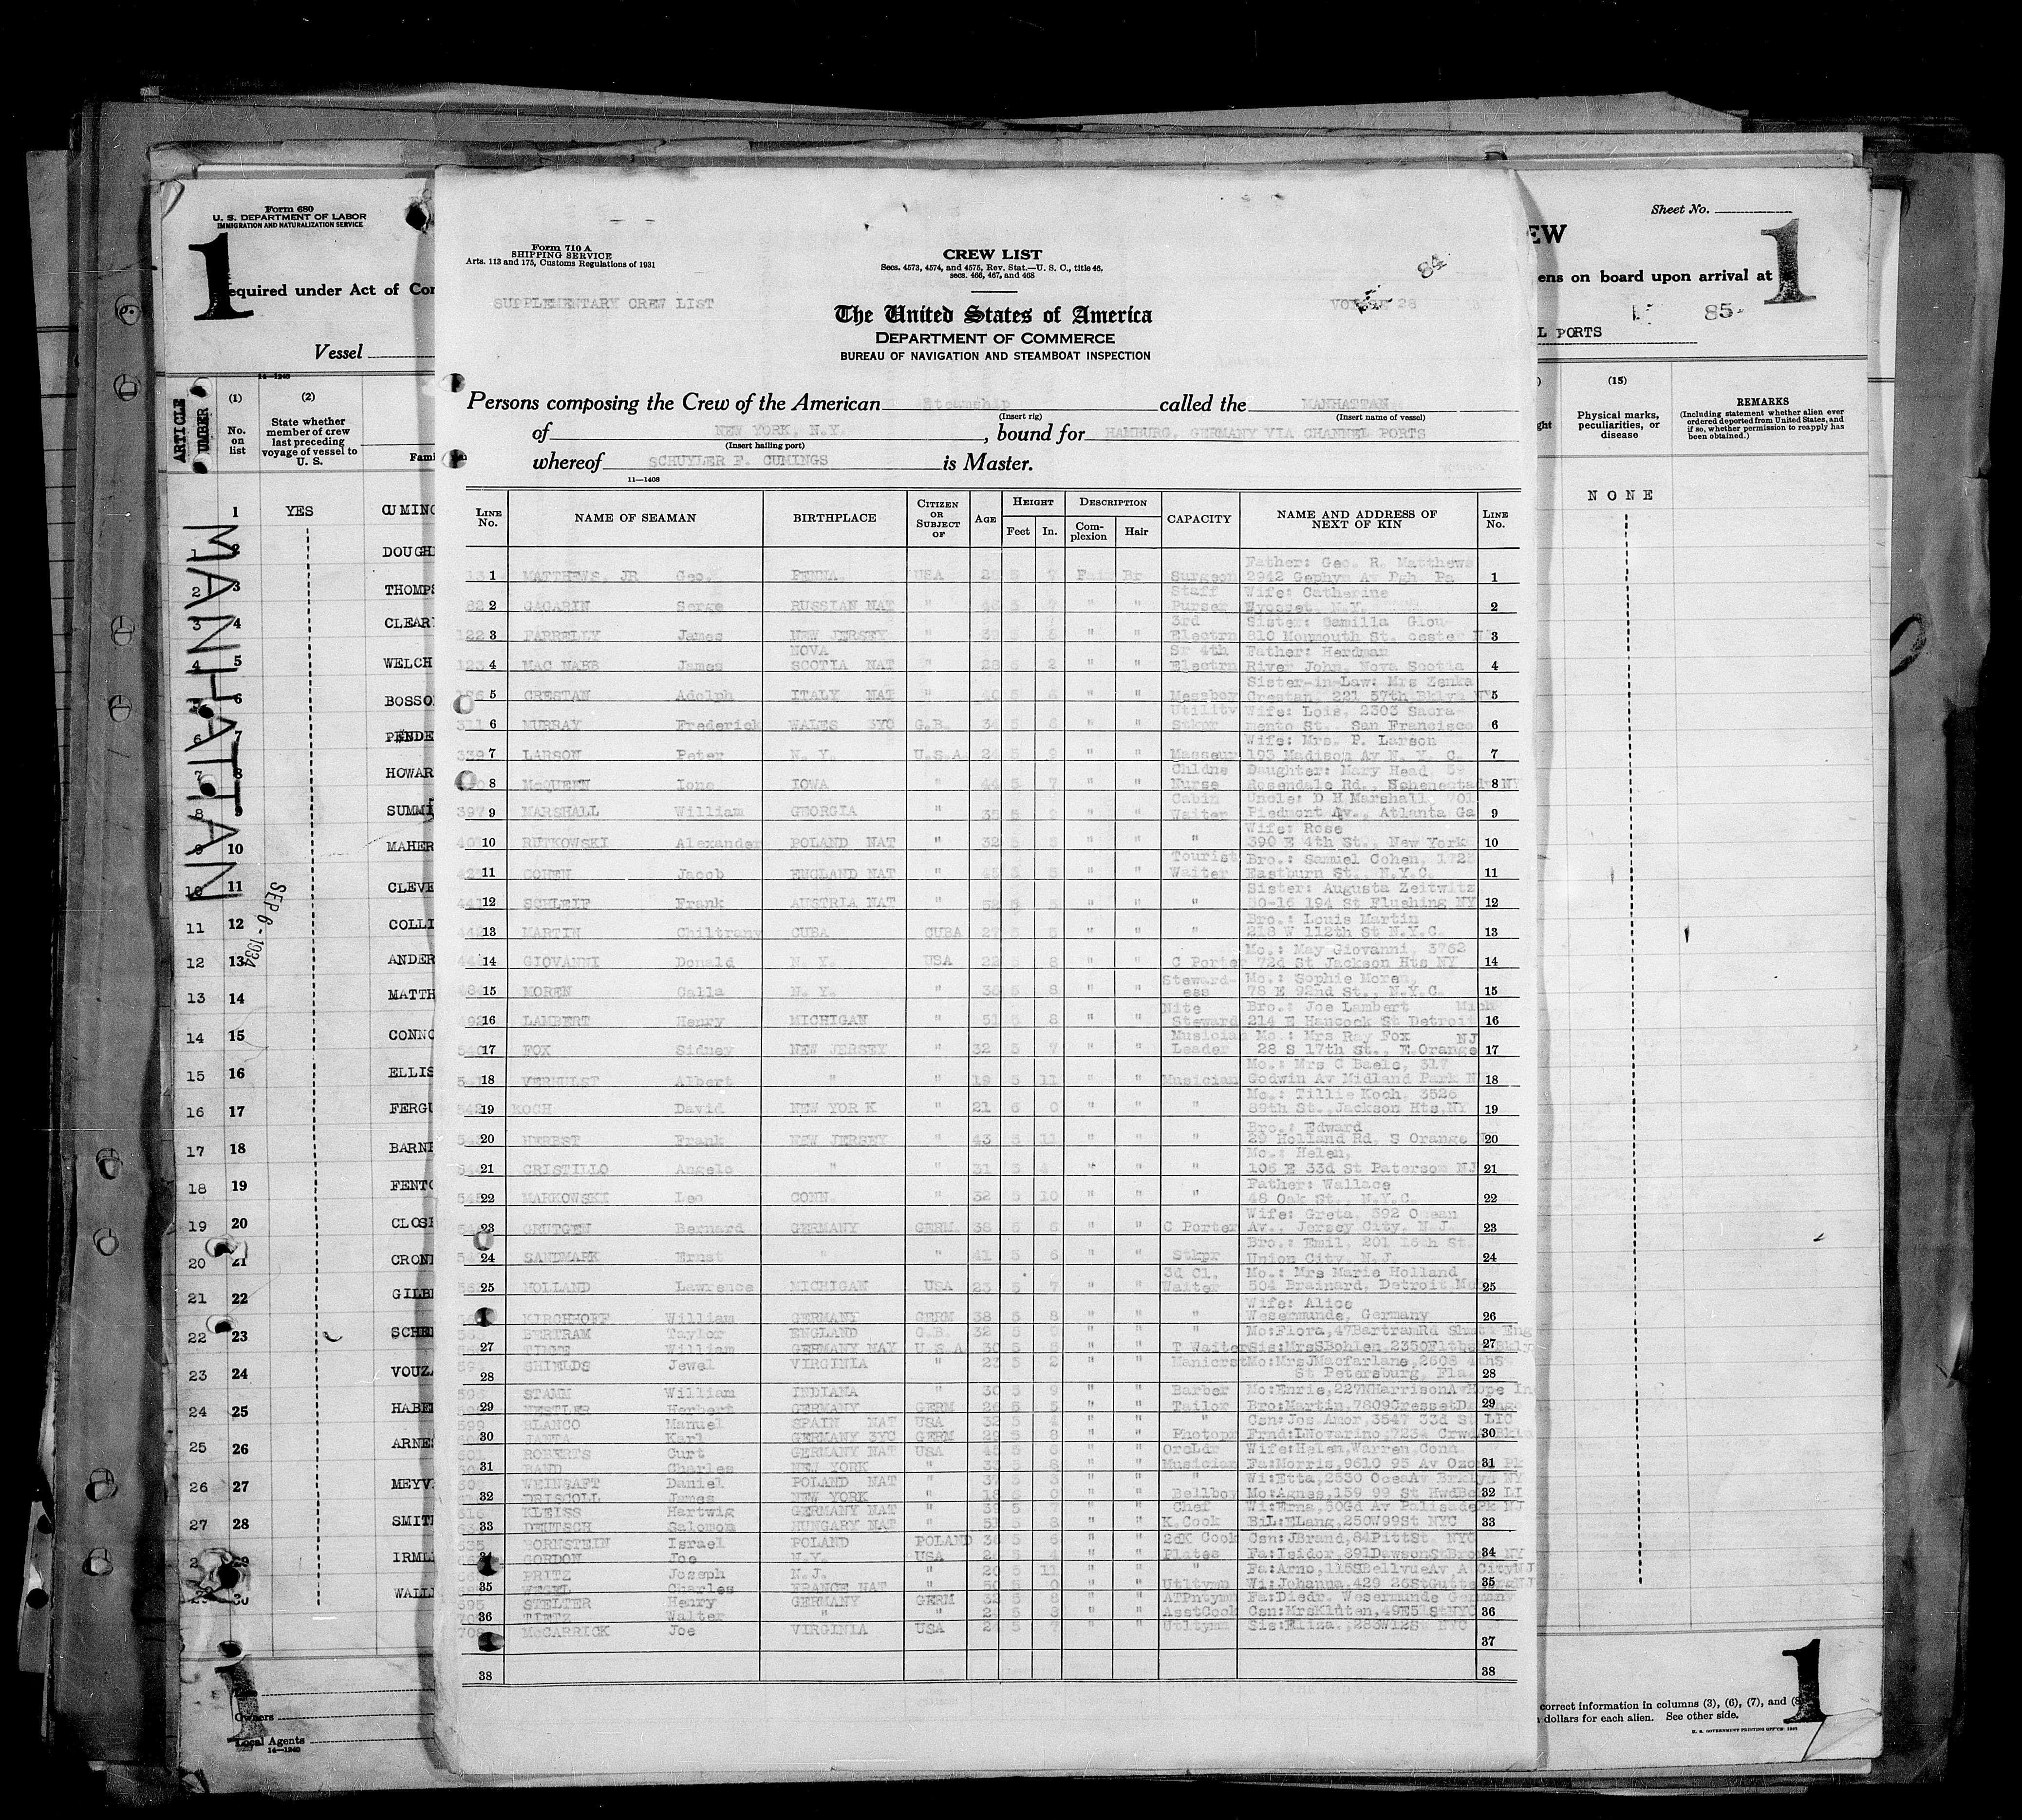 Form 680
U. S. DEPARTMENT OF LABOR
IMMIGRATION AND NATURALIZATION SERVICE
1
equired under Act of Con
Vessel
14—1240
ARTICLE
UMBER
(1)
No.
on
list
(2)
State whether
member of crew
last preceding
voyage of vessel to
U. S.
Fami
1 YES CUMING
DOUGH
2 3 THOMPS
3 4 CLEAR
4 5 WELCH
6 BOSSO
6 7 PENDE
7 8 HOWAR
8 9 SUMMI
9 10 MAHER
10 11 CLEVE
11 12 COLLI
12 13 ANDER
13 14 MATTH
14 15 CONNO
15 16 ELLIS
16 17 FERGU
17 18 BARNE
18 19 FENTO
19 20 CLOSI
20 21 CRONI
21 22 GILBE
22 23 SCHE
23 24 VOUZ
24 25 HABE
25 26 ARNES
26 27 MEYV
27 28 SMIT
29 IRML
30 WALL
MANHATTAN
SEP 6 - 1934
Owners
Local Agents
14—1240
Form 710 A
SHIPPING SERVICE
Arts. 113 and 175, Customs Regulations of 1931
CREW LIST
Secs. 4573, 4574, and 4575, Rev. Stat.—U. S. C., title 46,
secs. 466, 467, and 468
84
SUPPLEMENTARY CREW LIST
VOYAGE 28
The United States of America
DEPARTMENT OF COMMERCE
BUREAU OF NAVIGATION AND STEAMBOAT INSPECTION
Persons composing the Crew of the American Steamship called the MANHATTAN
(Insert rig) (Insert name of vessel)
of NEW YORK, N.Y. , bound for HAMBURG, GERMANY VIA CHANNEL PORTS
(Insert hailing port)
whereof SCHUYLER F. CUMINGS is Master.
11—1408
LINE No. NAME OF SEAMAN BIRTHPLACE CITIZEN OR SUBJECT OF AGE HEIGHT Feet In. DESCRIPTION Complexion Hair CAPACITY NAME AND ADDRESS OF NEXT OF KIN LINE No.
Father: Geo. R. Matthews
1 MATTHEWS, JR Geo. PENNA. USA 5 7 Fair Br Surgeon 2942 Gephyn Av Pgh Pa 1
Staff Wife: Catherine
2 GAGARIN Serge RUSSIAN NAT " 5 7 " " Purser Syosset, N.Y. 2
3rd Sister: Camilla Glou-
3 FARRELLY James NEW JERSEY " 5 " " Electrn 810 Monmouth St. cester 3
NOVA Sr 4th Father: Herdman
4 MAC NABB James SCOTIA NAT " 28 2 " " Electrn River John, Nova Scotia 4
Sister-in-Law: Mrs Zenka
5 CRESTAN Adolph ITALY NAT " 40 5 6 " " Messboy Crestan, 221 57th Bklyn NY 5
Utility Wife: Lois, 2303 Sacra-
6 MURRAY Frederick WALES 3YC G.B. 34 5 6 " " Stkpr mento St., San Francisco 6
Wife: Mrs. P. Larson
7 LARSON Peter N. Y. U.S.A. 5 9 " " Masseur 193 Madison Av N. Y. C. 7
Chldns Daughter: Mary Head,
8 McQUEEN Iona IOWA " 44 5 7 " " Nurse Rosendale Rd., Schenectady NY 8
Cabin Uncle: D H Marshall, 701
9 MARSHALL William GEORGIA " 35 5 " " Waiter Piedmont Av., Atlanta Ga 9
Wife: Rose
10 RUTKOWSKI Alexander POLAND NAT " 32 5 5 " " " 390 E 4th St., New York 10
Tourist Bro.: Samuel Cohen, 1725
11 COHEN Jacob ENGLAND NAT " 45 5 5 " " Waiter Eastburn St., N.Y.C. 11
Sister: Augusta Zeitwitz
12 SCHLEIF Frank AUSTRIA NAT " 52 5 5 " " " 50-16 194 St Flushing NY 12
Bro.: Louis Martin
13 MARTIN Chiltrany CUBA CUBA 27 5 5 " " " 218 W 112th St N.Y.C. 13
Mo.: May Giovanni, 3762
14 GIOVANNI Donald N. Y. USA 22 5 8 " " C Porter 72d St Jackson Hts NY 14
Steward- Mo.: Sophie Moren,
15 MOREN Calla N. Y. " 36 5 8 " " ess 78 E 92nd St., N.Y.C. 15
Nite Bro.: Joe Lambert Mich
16 LAMBERT Henry MICHIGAN " 51 5 8 " " Steward 214 E Hancock St Detroit 16
Musician Mo.: Mrs Ray Fox NJ
17 FOX Sidney NEW JERSEY " 32 5 7 " " Leader 28 S 17th St., E.Orange 17
Mo.: Mrs C Baele, 317
18 VERHULST Albert " " 19 5 11 " " Musician Godwin Av Midland Park N 18
Mo.: Tillie Koch, 3526
19 KOCH David NEW YORK " 21 6 0 " " " 89th St., Jackson Hts, NY 19
Bro.: Edward
20 HERBST Frank NEW JERSEY " 43 5 11 " " " 29 Holland Rd, S Orange 20
Mo.: Helen,
21 CRISTILLO Angelo " " 31 5 4 " " " 106 E 33d St Paterson NJ 21
Father: Wallace
22 MARKOWSKI Leo CONN. " 32 5 10 " " " 48 Oak St., N.Y.C. 22
Wife: Greta, 592 Ocean
23 GRUTGEN Bernard GERMANY GERM. 38 5 6 " " C Porter Av., Jersey City, N.J. 23
Bro.: Emil, 201 15th St.
24 SANDMARK Ernst " " 41 5 6 " " Stkpr Union City, N.J. 24
3d Cl. Mo.: Mrs Marie Holland
25 HOLLAND Lawrence MICHIGAN USA 23 5 7 " " Waiter 504 Brainard, Detroit 25
Wife: Alice
KIRCHHOFF William GERMANY GERM 38 5 8 " " " Wesermunde, Germany 26
BERTRAM Taylor ENGLAND G.B. 32 5 " " " Mo:Flora,47BartramRd Eng
27 William GERMANY NAY U.S.A. 30 5 " " T Waiter Sis:MrsSBohlen,2350 27
SHIELDS Jewel VIRGINIA " 5 2 " " Manicrst Mo:MrsJMacfarlane,2608 4thS
28 St Petersburg, Fla. 28
STAMM William INDIANA " 30 5 9 " " Barber Mo:Enris,227NHarrisonAvHope In
29 NESTLER Herbert GERMANY GERM 26 5 5 " " Tailor Bro:Martin,7809 29
BLANCO Manuel SPAIN NAT USA 32 5 4 " " " Csn:Jos Amor,3547 33d St LIC
30 JANTA Karl GERMANY 3YC GERM 29 5 8 " " Photopr Frnd:LNovarino,7234 30
ROBERTS Curt GERMANY NAT USA 5 6 " " OrcLdr Wife:Helen,Warren,Conn.
31 RAND Charles NEW YORK " 5 8 " " Musician Fa:Morris,9610 95 Av Ozone Pk 31
WEINGAFT Daniel POLAND NAT " 37 5 3 " " " Wi:Etta,2530 OceaAv Brklyn NY
32 DRISCOLL James NEW YORK " 18 0 " " Bellboy Mo:Agnes,159 99 St 32 LI
KLEISS Hartwig GERMANY NAT " 35 5 7 " " Chef Wi:Erna,50Gd Av PalisadePk NJ
33 DEUTSCH Salomon HUNGARY NAT " 51 5 8 " " K.Cook BiL:ELang,250W99St NYC 33
BORNSTEIN Israel POLAND POLAND 5 6 " " 2dK Cook Csn:JBrand,84PittSt NYC
GORDON Joe N.Y. USA 5 4 " " Plates Fa:Isidor,891DawsonStBro NY 34
PRITZ Joseph N.J. " 20 5 11 " " " Fa:Arno,115SBellvueAv,A CityNJ
35 WEGEL Charles FRANCE NAT " 50 5 " " Utltymn Wi:Johanna,429 26StGuttenbrgNJ 35
STELTER Henry GERMANY GERM 5 8 " " ATPntymn Fa:Diedr. Wesermunde Germany
36 TIETZ Walter " " 5 " " AsstCook Csn:MrsKluten,49E51StNYC 36
McCARRICK Joe VIRGINIA USA 5 7 " " Utltymn Sis:Eliza.,283W12St NYC
37
38 38
EW
Sheet No.
1
ens on board upon arrival at
85
L PORTS
(15)
ght
Physical marks,
peculiarities, or
disease
REMARKS
(Including statement whether alien ever
ordered deported from United States, and
if so, whether permission to reapply has
been obtained.)
NONE
1
correct information in columns (3), (6), (7), and (8
dollars for each alien. See other side.
U. S. GOVERNMENT PRINTING OFFICE